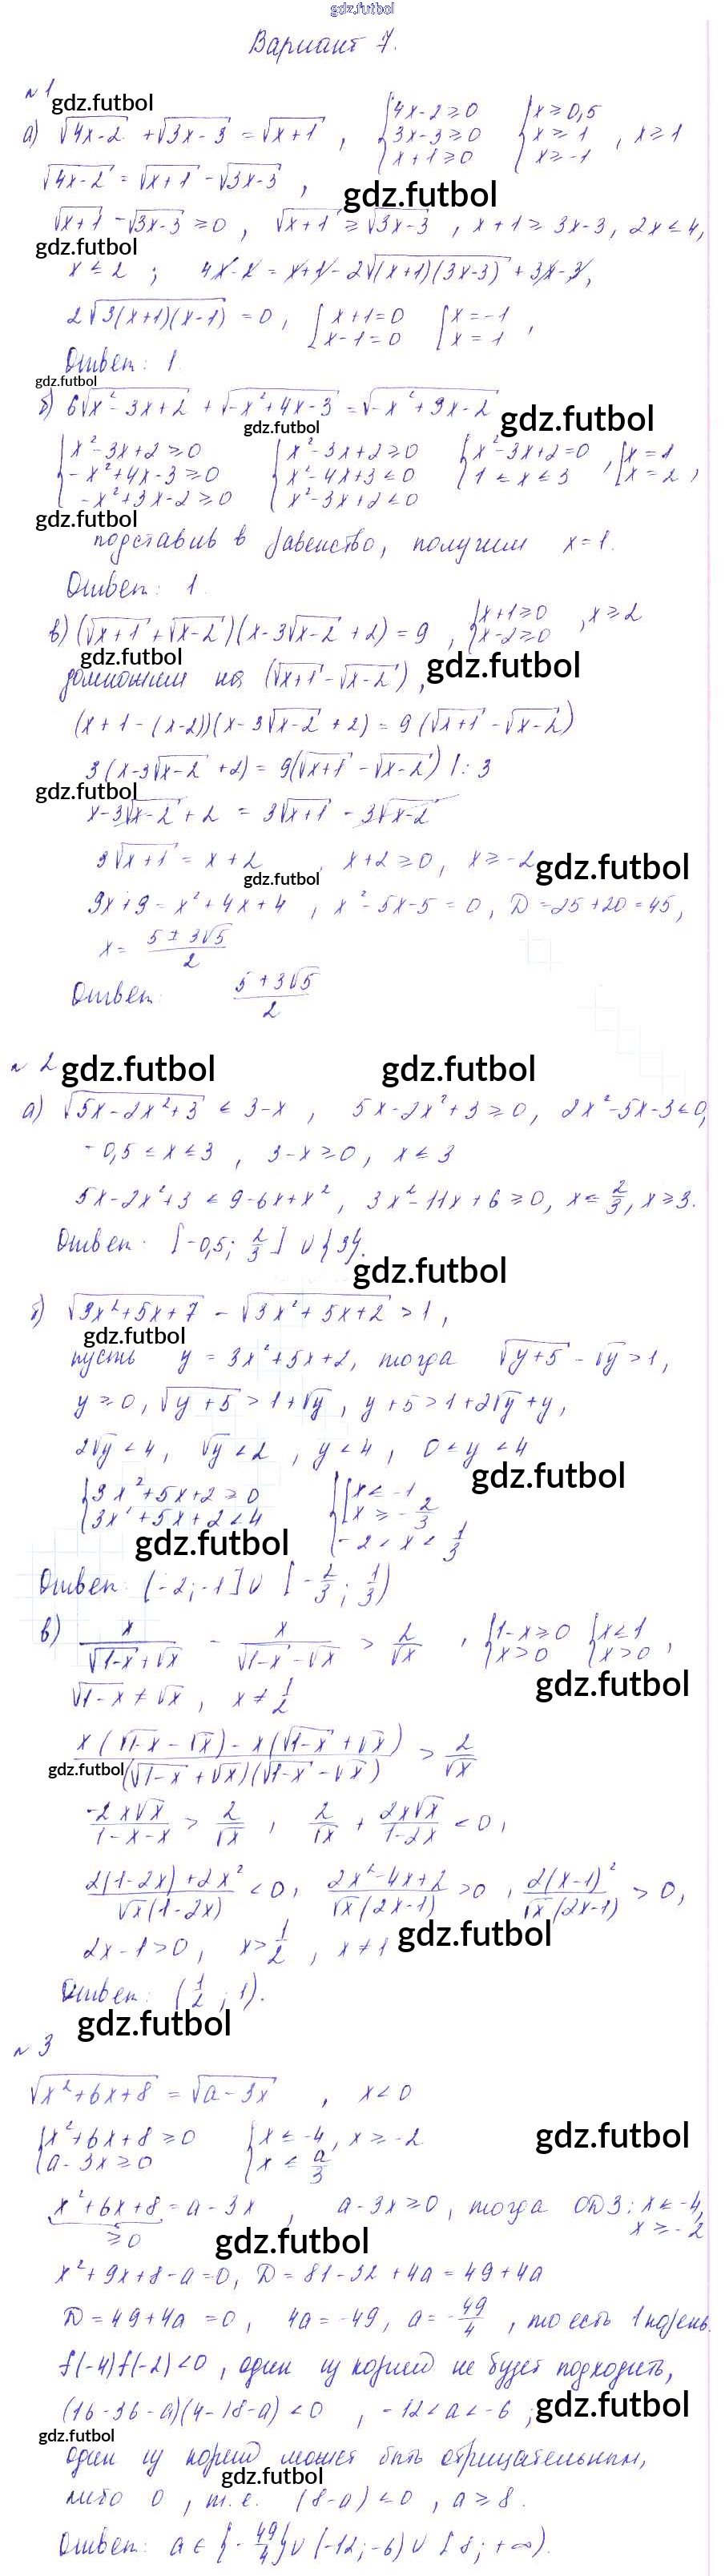 gdz.futbol
Вариант 7.
№1 gdz.futbol
а) √(4x-2) + √(3x-3) = √(x+1) , {4x-2≥0 {x≥0,5
3x-3≥0 x≥1 , x≥1
x+1≥0 x≥-1
√(4x-2) = √(x+1) - √(3x-3) ,
gdz.futbol
√(x+1) - √(3x-3) ≥0 , √(x+1) ≥ √(3x-3) , x+1≥3x-3, 2x≤4,
gdz.futbol
x≤2 ; 4x-2 = x+1 - 2√((x+1)(3x-3)) + 3x-3,
2√(3(x+1)(x-1)) = 0 , [x+1=0 [x=-1
x-1=0 x=1 ,
Ответ: 1.
gdz.futbol
б) 6√(x²-3x+2) + √(-x²+4x-3) = √(-x²+3x-2)
gdz.futbol
gdz.futbol
{x²-3x+2≥0 {x²-3x+2≥0 {x²-3x+2=0 [x=1
-x²+4x-3≥0 x²-4x+3≤0 1≤x≤3 , x=2 ,
-x²+3x-2≥0 x²-3x+2≤0
gdz.futbol
подставив в равенство, получим x=1.
Ответ: 1.
в) (√(x+1) + √(x-2))(x-3√(x-2) +2) = 9 , {x+1≥0 , x≥2
x-2≥0
gdz.futbol gdz.futbol
домножим на (√(x+1) - √(x-2)) ,
(x+1-(x-2))(x-3√(x-2) +2) = 9(√(x+1) - √(x-2))
3(x-3√(x-2) +2) = 9(√(x+1) - √(x-2)) |:3
gdz.futbol
x-3√(x-2) +2 = 3√(x+1) - 3√(x-2)
3√(x+1) = x+2 , x+2≥0, x≥-2
gdz.futbol
gdz.futbol
9x+9 = x²+4x+4 , x²-5x-5=0, D=25+20=45,
x= (5±3√5)/2
Ответ: (5+3√5)/2
№2 gdz.futbol gdz.futbol
а) √(5x-2x²+3) ≤ 3-x , 5x-2x²+3≥0, 2x²-5x-3≤0,
-0,5≤x≤3 , 3-x≥0, x≤3
5x-2x²+3 ≤ 9-6x+x² , 3x²-11x+6≥0, x≤2/3, x≥3.
Ответ: [-0,5; 2/3] ∪ {3}.
gdz.futbol
б) √(3x²+5x+7) - √(3x²+5x+2) >1 ,
gdz.futbol
пусть y = 3x²+5x+2, тогда √(y+5) - √y >1,
y≥0, √(y+5) >1+√y , y+5>1+2√y+y,
2√y <4, √y <2 , y<4 , 0≤y<4
gdz.futbol
{3x²+5x+2≥0 {[x≤-1
3x²+5x+2<4 x≥-2/3
-2<x<1/3
gdz.futbol
Ответ: (-2;-1] ∪ [-2/3; 1/3)
в) x/(√(1-x)+√x) - x/(√(1-x)-√x) > 2/√x , {1-x≥0 {x≤1
x>0 x>0 ,
gdz.futbol
√(1-x) ≠ √x , x≠1/2
(x(√(1-x) - √x) - x(√(1-x) + √x))/((√(1-x) + √x)(√(1-x) - √x)) > 2/√x
gdz.futbol
-2x√x/(1-x-x) > 2/√x , 2/√x + 2x√x/(1-2x) <0,
(2(1-2x)+2x²)/(√x(1-2x)) <0, (2x²-4x+2)/(√x(2x-1)) >0 , 2(x-1)²/(√x(2x-1)) >0,
2x-1>0, x>1/2 , x≠1
gdz.futbol
Ответ: (1/2; 1).
gdz.futbol
№3
√(x²+6x+8) = √(a-3x) , x<0
{x²+6x+8≥0 {x≤-4, x≥-2
a-3x≥0 x≤a/3
gdz.futbol
x²+6x+8 = a-3x , a-3x≥0, тогда ОДЗ: x≤-4,
≥0 x≥-2
gdz.futbol
x²+9x+8-a=0, D=81-32+4a=49+4a
D=49+4a=0, 4a=-49, a=-49/4 , то есть 1 корень.
f(-4)f(-2)<0 , один из корней не будет подходить,
(16-36-a)(4-18-a)<0 , -12<a<-6 ;
gdz.futbol
gdz.futbol
один из корней может быть отрицательным,
gdz.futbol
либо 0 , т.е. (8-a)≤0 , a≥8.
Ответ: a∈{-49/4}∪(-12;-6)∪[8;+∞).